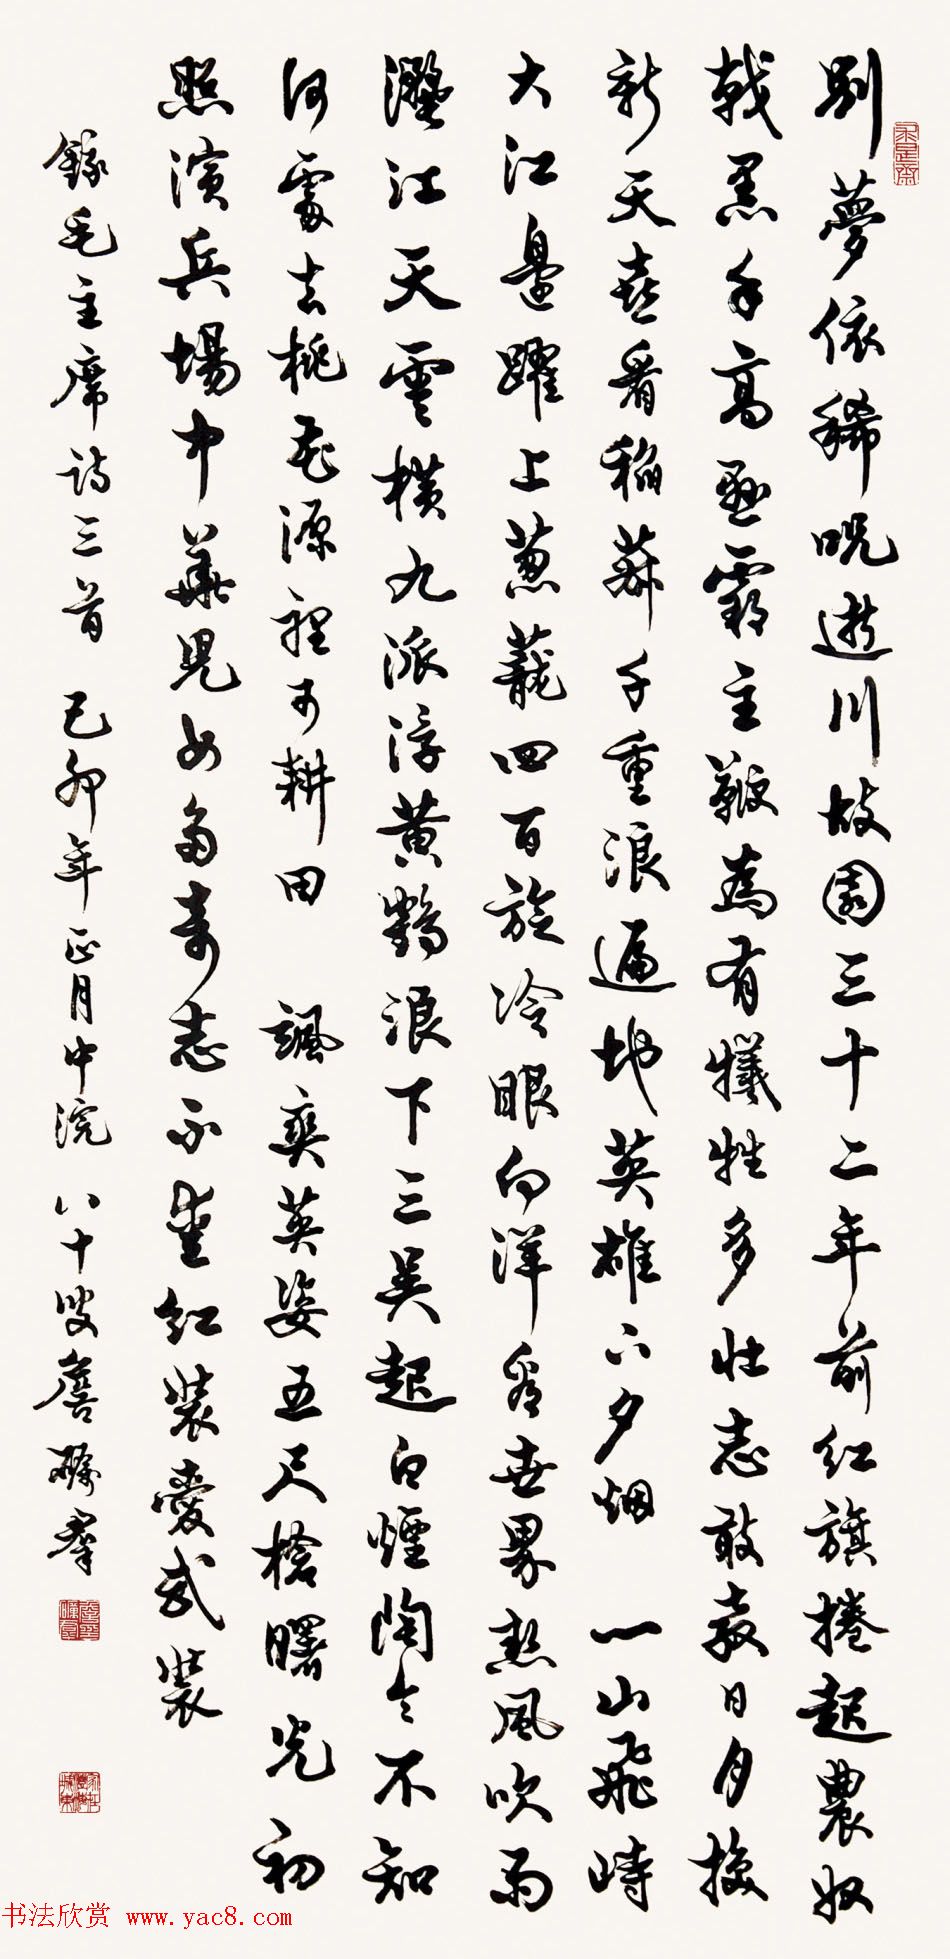 別夢依稀呪逝川故園三十二年前紅旗捲起農奴
戟黑手高懸霸主鞭為有犧牲多壯志敢教日月換
新天喜看稻菽千重浪遍地英雄下夕烟　一山飛峙
大江邊躍上蔥蘢四百旋冷眼向洋看世界熱風吹雨
灑江天雲橫九派浮黃鶴浪下三吳起白煙陶令不知
何處去桃花源裡可耕田　颯爽英姿五尺槍曙光初
照演兵場中華兒女多奇志不愛紅裝愛武裝
錄毛主席詩三首　己卯年正月中浣　八十叟詹礪羣
书法欣赏 www.yac8.com